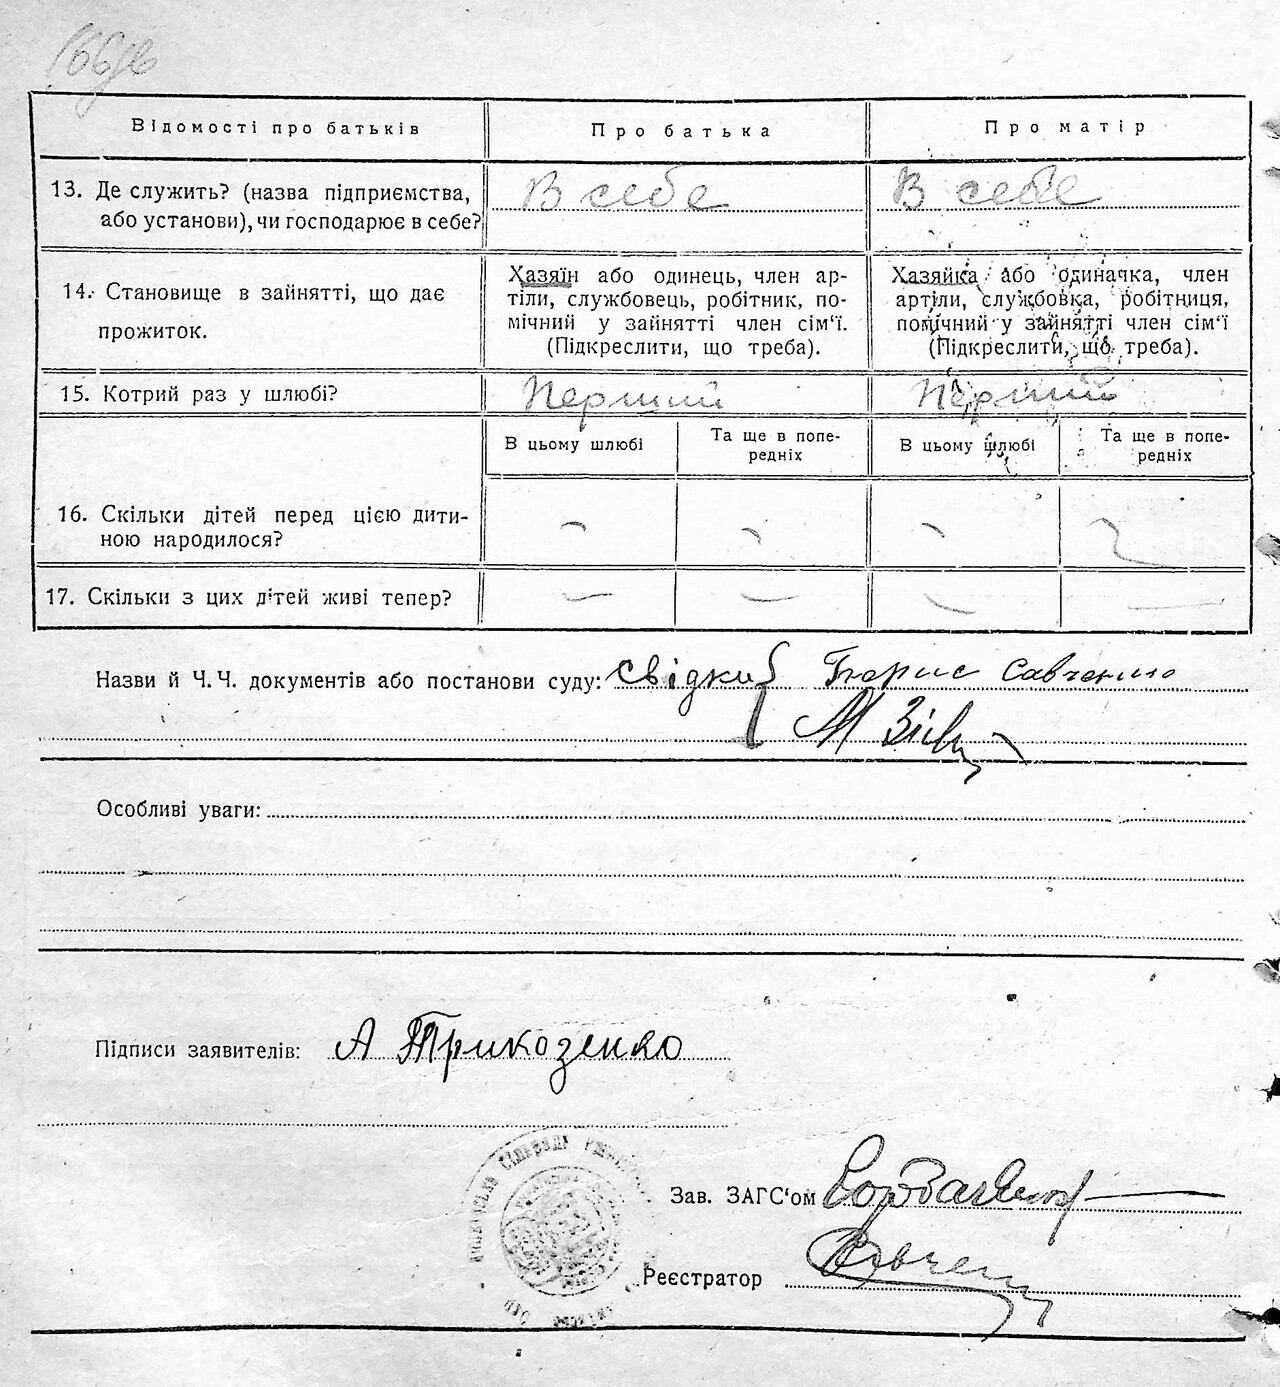 Відомості про батьків
Про батька
Про матір
13. Де служить? (назва підприємства,
або установи), чи господарює в себе?
В себе
В себе
14. Становище в зайнятті, що дає
прожиток.
Хазяїн або одинець, член ар-
тіли, службовець, робітник, по-
мічний у зайнятті член сім'ї.
(Підкреслити, що треба).
Хазяйка або одиначка, член
артіли, службовка, робітниця,
помічний у зайнятті член сім'ї
(Підкреслити, що треба).
15. Котрий раз у шлюбі?
Перший
Перший
В цьому шлюбі
Та ще в попе-
редніх
В цьому шлюбі
Та ще в попе-
редніх
16. Скільки дітей перед цією дити-
ною народилося?
17. Скільки з цих дітей живі тепер?
Назви й Ч.Ч. документів або постанови суду: свідки Борис Савченко
М
Особливі уваги:
Підписи заявителів: А Трикозенко
Сільрада
Зав. ЗАГС'ом
Реєстратор